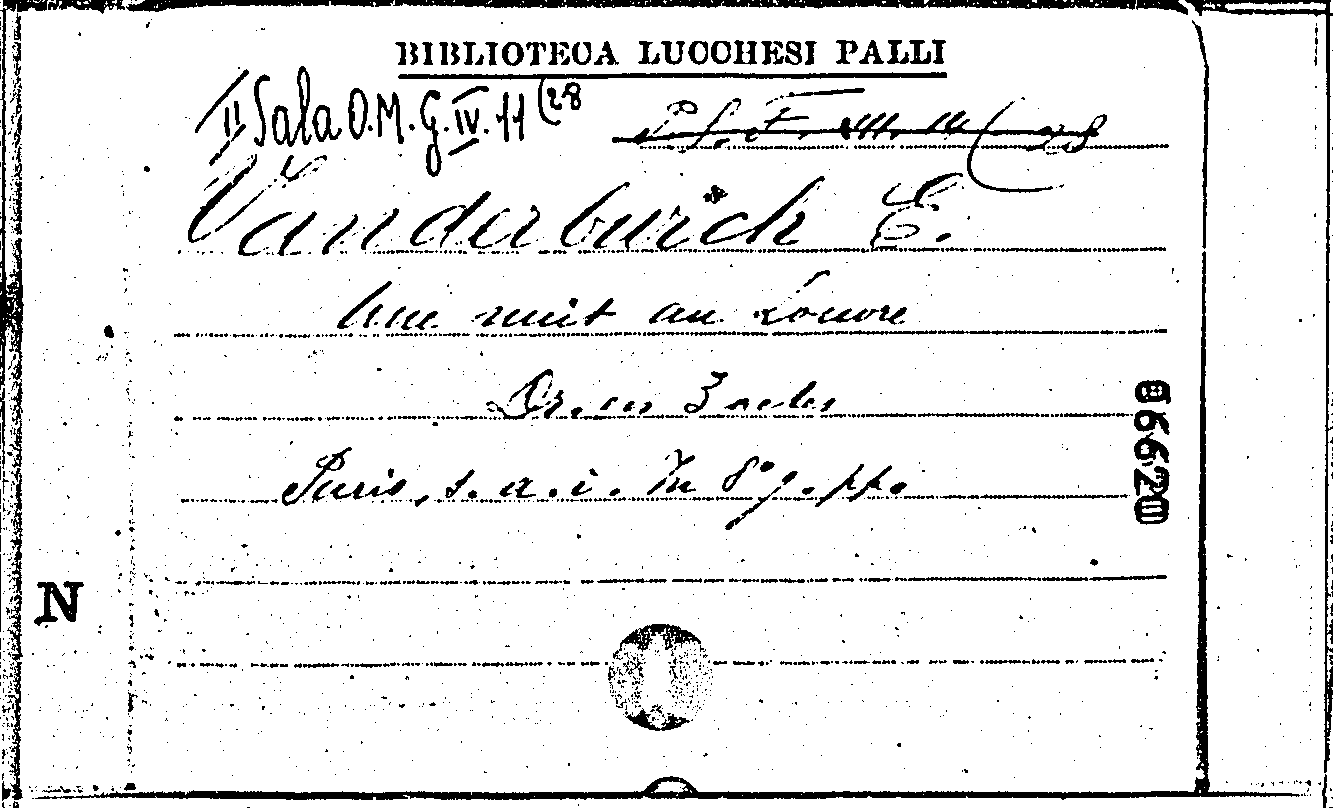 BIBLIOTECA LUCCHESI PALLI
II Sala O.M. G. IV. 11 (28
Vanderburch E.
Une nuit au Louvre
Dr. en 3 actes
Paris, s. a. i. In 8° g. pp.
66620
N